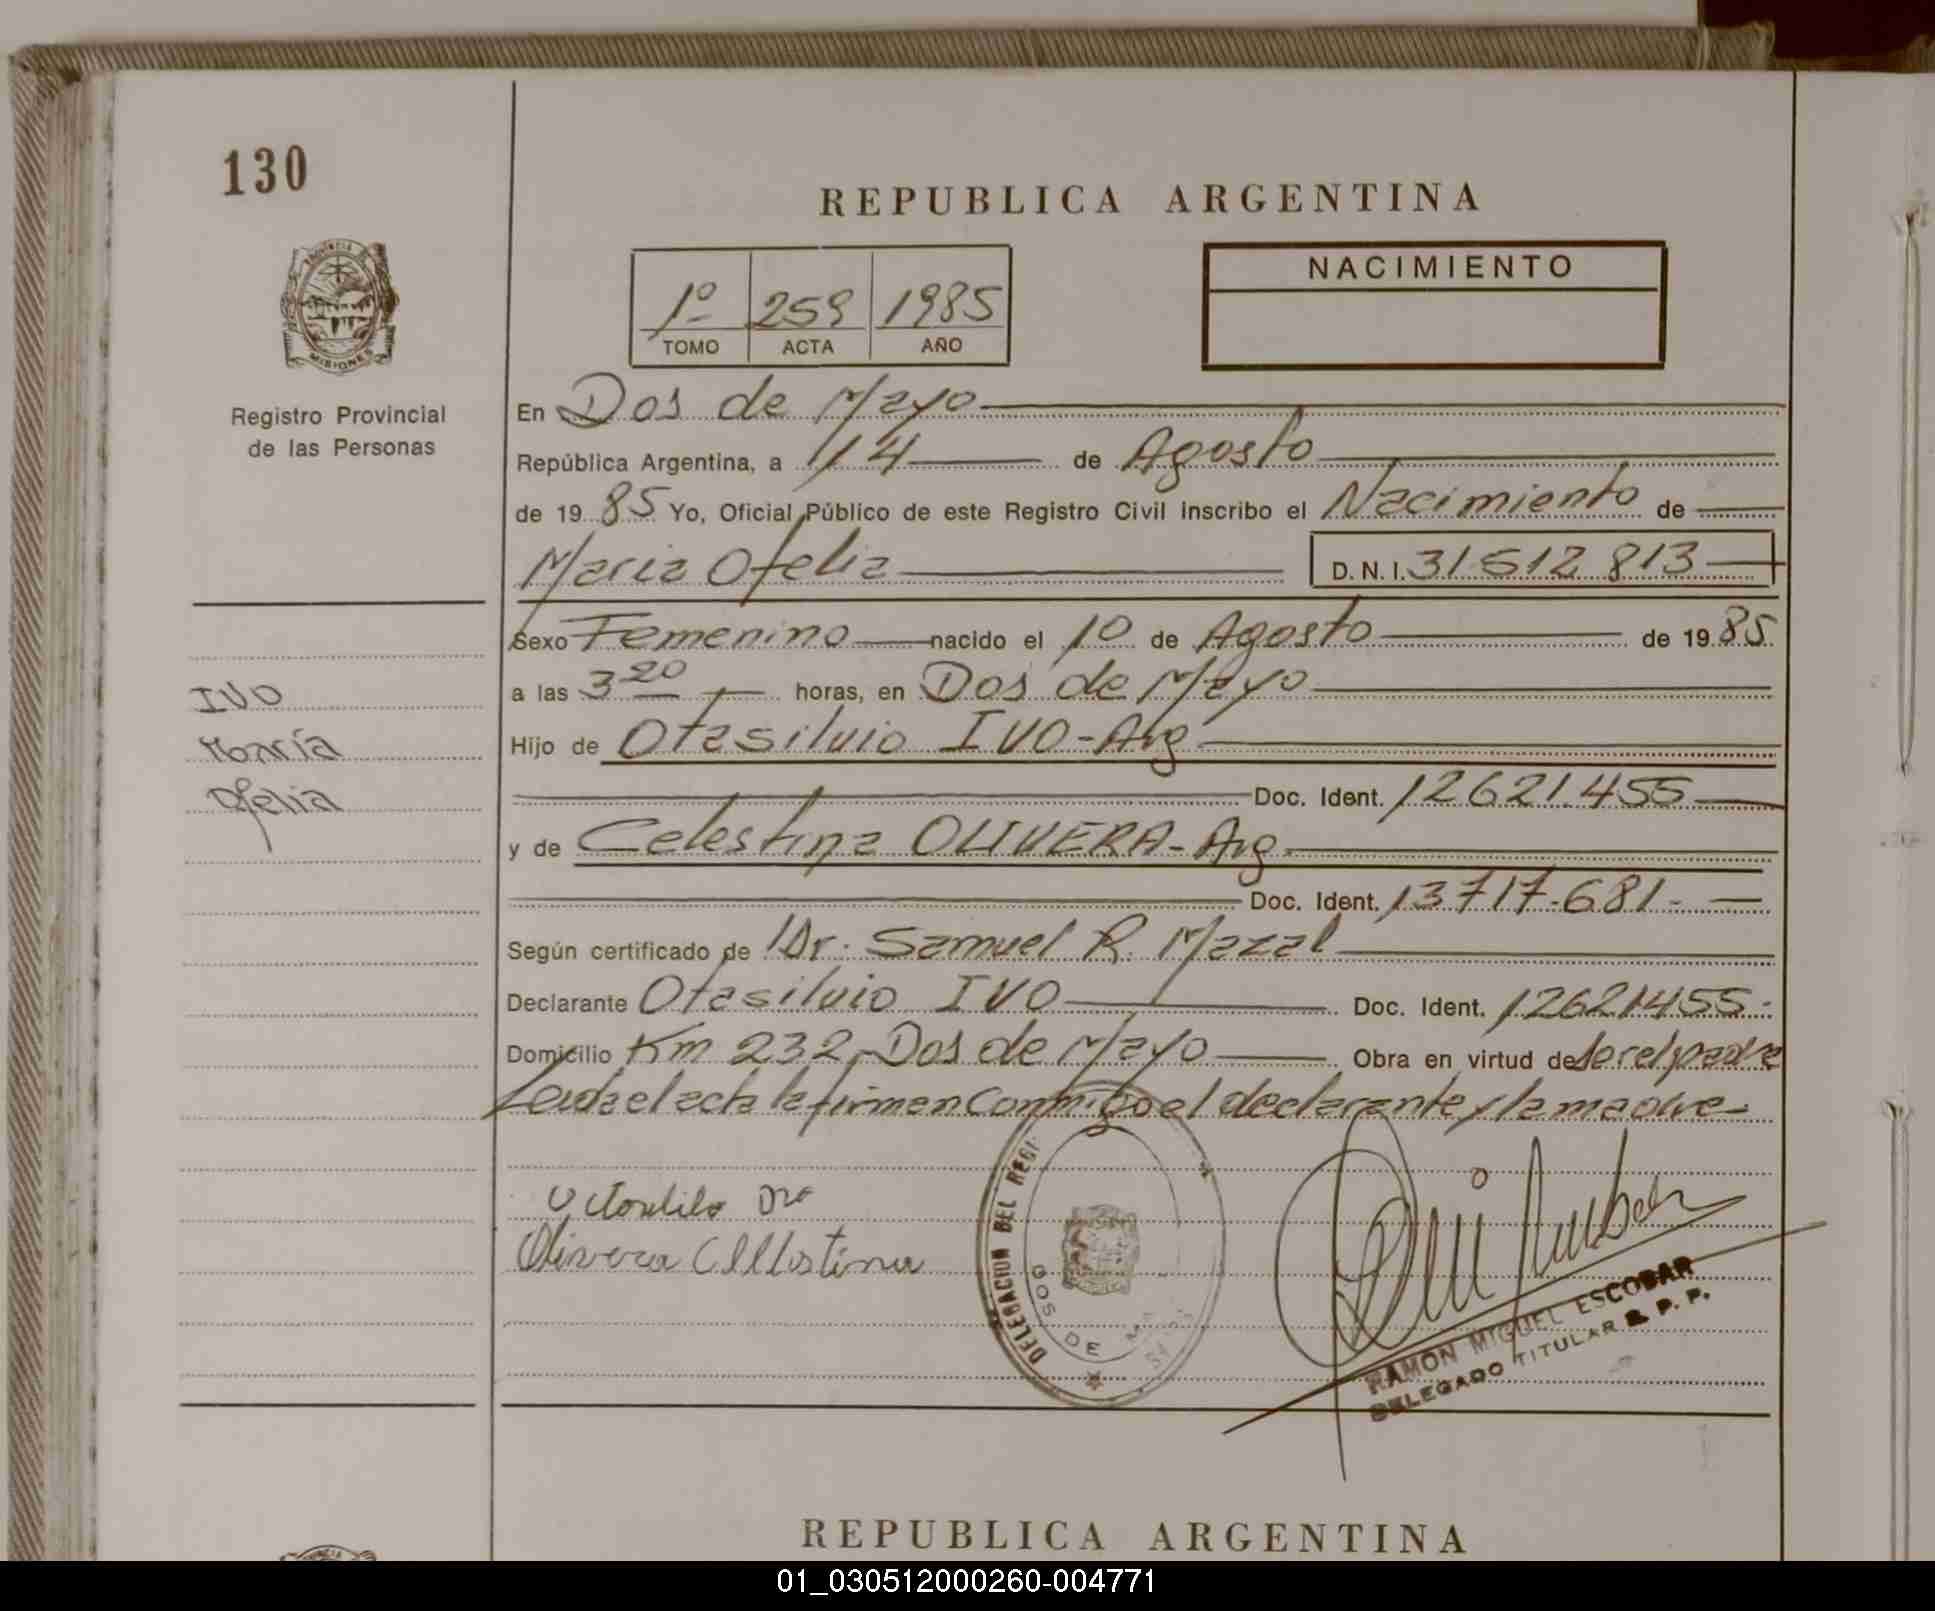 130
REPUBLICA ARGENTINA
PROVINCIA DE MISIONES
Registro Provincial
de las Personas
1º 259 1985
TOMO ACTA AÑO
NACIMIENTO
En Dos de Mayo
República Argentina, a 14 de Agosto
de 1985 Yo, Oficial Público de este Registro Civil inscribo el Nacimiento de
Maria Ofelia D.N.I. 31 512 813
Sexo Femenino nacido el 10 de Agosto de 1985.
a las 3 20 horas, en Dos de Mayo
Hijo de Otasiluio IVO-Arg
Doc. Ident. 12621.455
y de Celestina OLIVERA-Arg.
Doc. Ident. 13717.681.
Según certificado de Dr. Samuel R. Mazal
Declarante Otasiluio IVO Doc. Ident. 12621455.
Domicilio Km 232, Dos de Mayo Obra en virtud de ser el padre
Leida el acta la firman Conmigo el declarante y la madre-
IVO
María
Ofelia
Olivera Cellestina
DELEGACION DEL REGI
DOS DE MA
RAMON MIGUEL ESCOBAR
DELEGADO TITULAR R. P. P.
REPUBLICA ARGENTINA
01_030512000260-004771